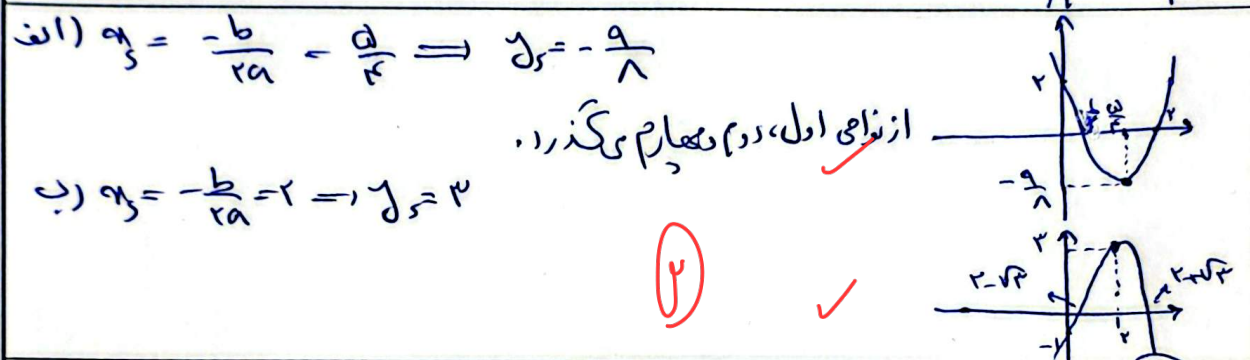 الف) x_s = -b/۲a = ۵/۴ ⟹ y_s = -۹/۸
از نواحی اول، دوم و چهارم می‌گذرد.
ب) x_s = -b/۲a = ۲ ⟹ y_s = ۳
۲
۲
۱/۲
۵/۴
۲
-۹/۸
۳
۲-√۳
۲+√۳
۲
-۱